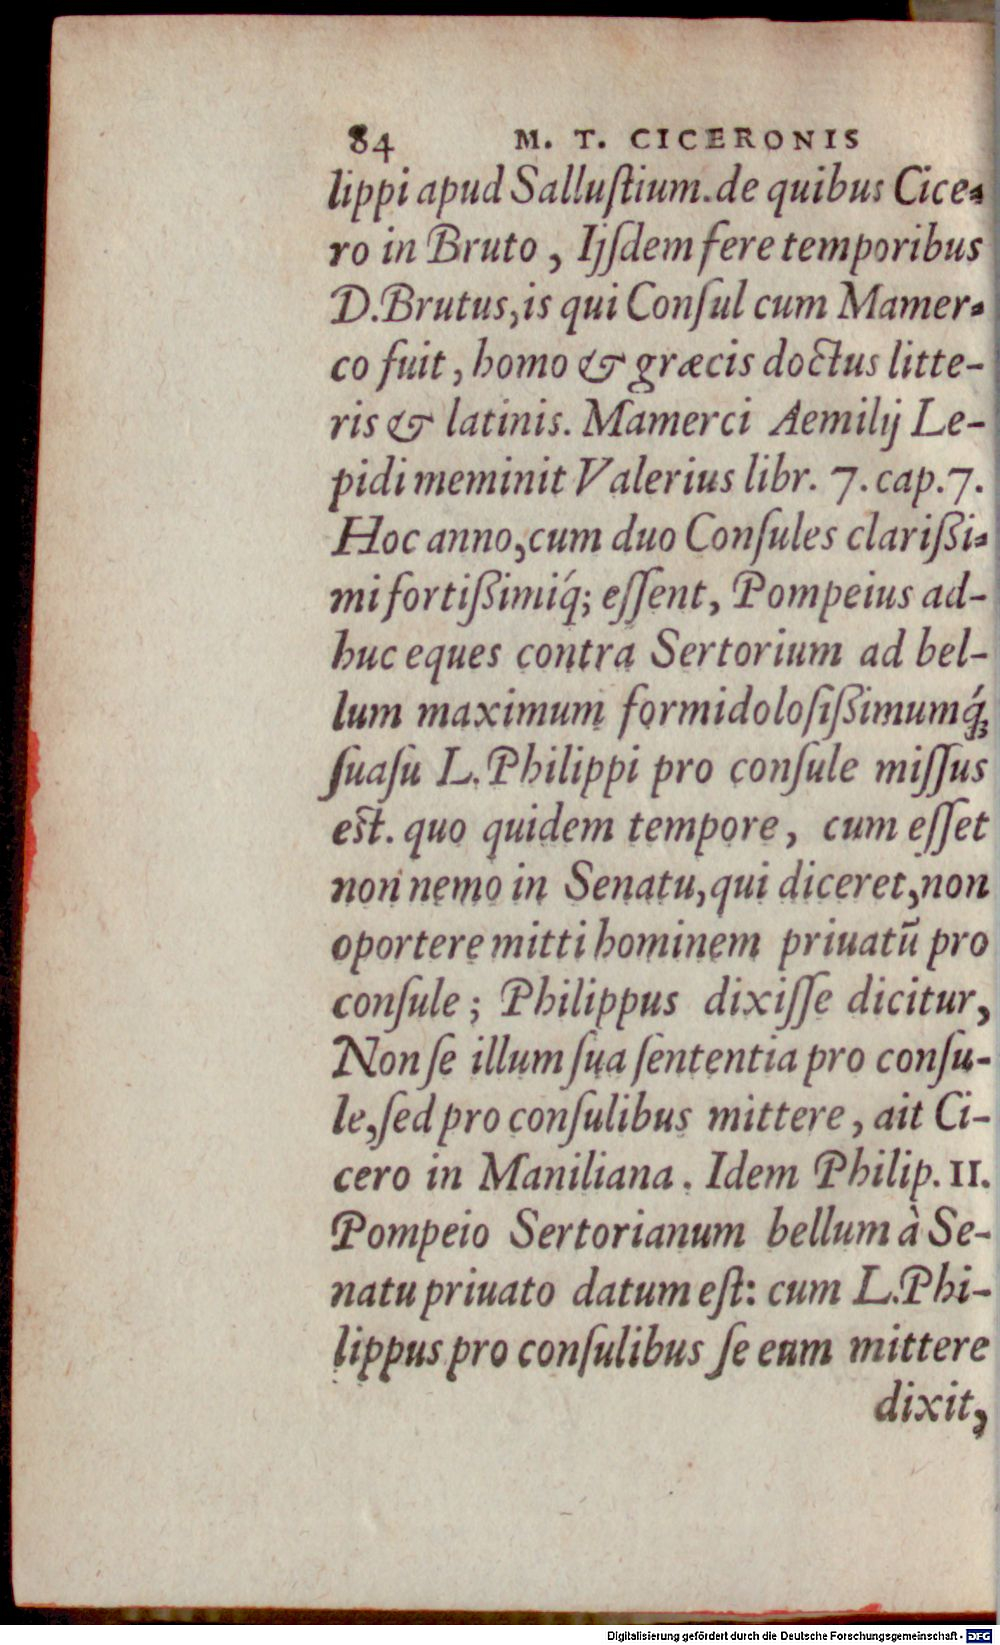 84 M. T. CICERONIS
lippi apud Salluſtium.de quibus Cice-
ro in Bruto , Ijſdem fere temporibus
D.Brutus,is qui Conſul cum Mamer-
co fuit, homo & græcis doctus litte-
ris & latinis. Mamerci Aemilij Le-
pidi meminit Valerius libr. 7. cap.7.
Hoc anno,cum duo Conſules clarißi-
mi fortißimiq́; eſſent, Pompeius ad-
huc eques contra Sertorium ad bel-
lum maximum formidoloſißimumq́;
ſuaſu L.Philippi pro conſule miſſus
est. quo quidem tempore, cum eſſet
non nemo in Senatu,qui diceret,non
oportere mitti hominem priuatū pro
conſule ; Philippus dixiſſe dicitur,
Non ſe illum ſua ſententia pro conſu-
le,ſed pro conſulibus mittere, ait Ci-
cero in Maniliana. Idem Philip. II.
Pompeio Sertorianum bellum à Se-
natu priuato datum eſt: cum L.Phi-
lippus pro conſulibus ſe eum mittere
dixit,
Digitalisierung gefördert durch die Deutsche Forschungsgemeinschaft - DFG